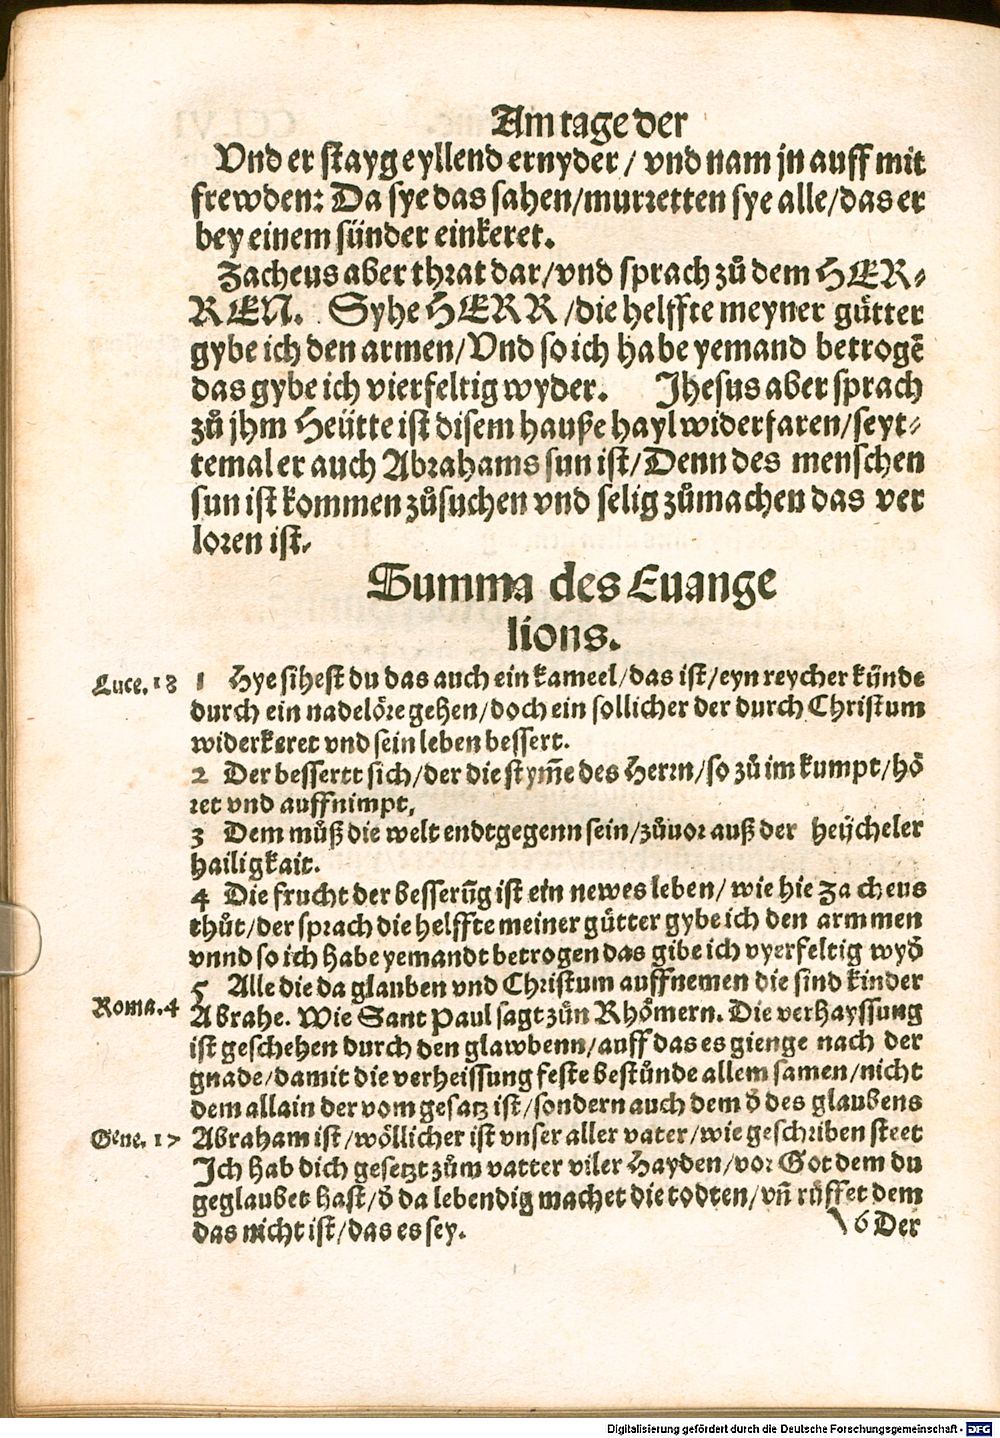 Am tage der
Vnd er stayg eyllend ernyder / vnd nam jn auff mit
frewden: Da sye das sahen/murretten sye alle/das er
bey einem sünder einkeret.
Zacheus aber thrat dar/vnd sprach zů dem HER⸗
REN. Syhe HERR /die helffte meyner gůtter
gybe ich den armen/Vnd so ich habe yemand betrogē
das gybe ich vierfeltig wyder. Jhesus aber sprach
zů jhm Heütte ist disem hauße hayl widerfaren/seyt⸗
temal er auch Abrahams sun ist/Denn des menschen
sun ist kommen zůsuchen vnd selig zůmachen das ver
loren ist.
Summa des Euange
lions.
Luce. 18 1 Hye sihest du das auch ein kameel/das ist/eyn reycher künde
durch ein nadelöre gehen/doch ein sollicher der durch Christum
widerkeret vnd sein leben bessert.
2 Der bessertt sich/der die stym̄e des Herrn/so zů im kumpt/hö
ret vnd auffnimpt,
3 Dem můß die welt endtgegenn sein/zůuor auß der heÿcheler
hailigkait.
4 Die frucht der besserūg ist ein newes leben/ wie hie Zacheus
thůt/der sprach die helffte meiner gůtter gybe ich den armmen
vnnd so ich habe yemandt betrogen das gibe ich vyerfeltig wyd̄
5 Alle die da glauben vnd Christum auffnemen die sind kinder
Roma.4 Abrahe. Wie Sant Paul sagt zůn Rhömern. Die verhayssung
ist geschehen durch den glawbenn/auff das es gienge nach der
gnade/damit die verheissung feste bestůnde allem samen/nicht
dem allain der vom gesatz ist/sondern auch dem d̄ des glaubens
Gene. 17 Abraham ist/wöllicher ist vnser aller vater/wie geschriben steet
Ich hab dich gesetzt zům vatter viler Hayden/vor Got dem du
geglaubet hast/d̄ da lebendig machet die todten/vn̄ růffet dem
das nicht ist/das es sey.
6 Der
Digitalisierung gefördert durch die Deutsche Forschungsgemeinschaft - DFG